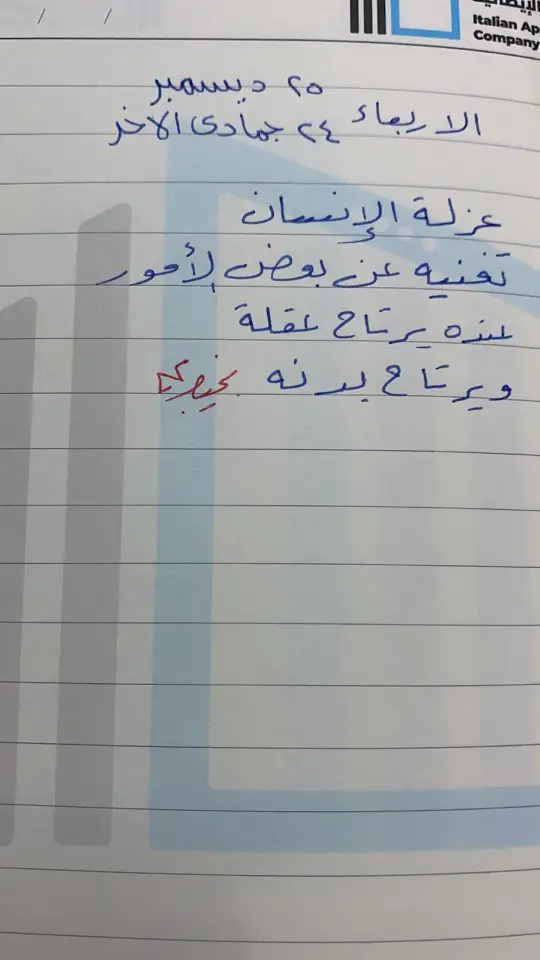 Italian Ap
Company
/ /
٢٥ ديسمبر
الاربعاء ٢٤ جمادى الاخر
عزلة الإنسان
تغنيه عن بعض الأمور
عنده يرتاح عقلة
ويرتاح بدنه